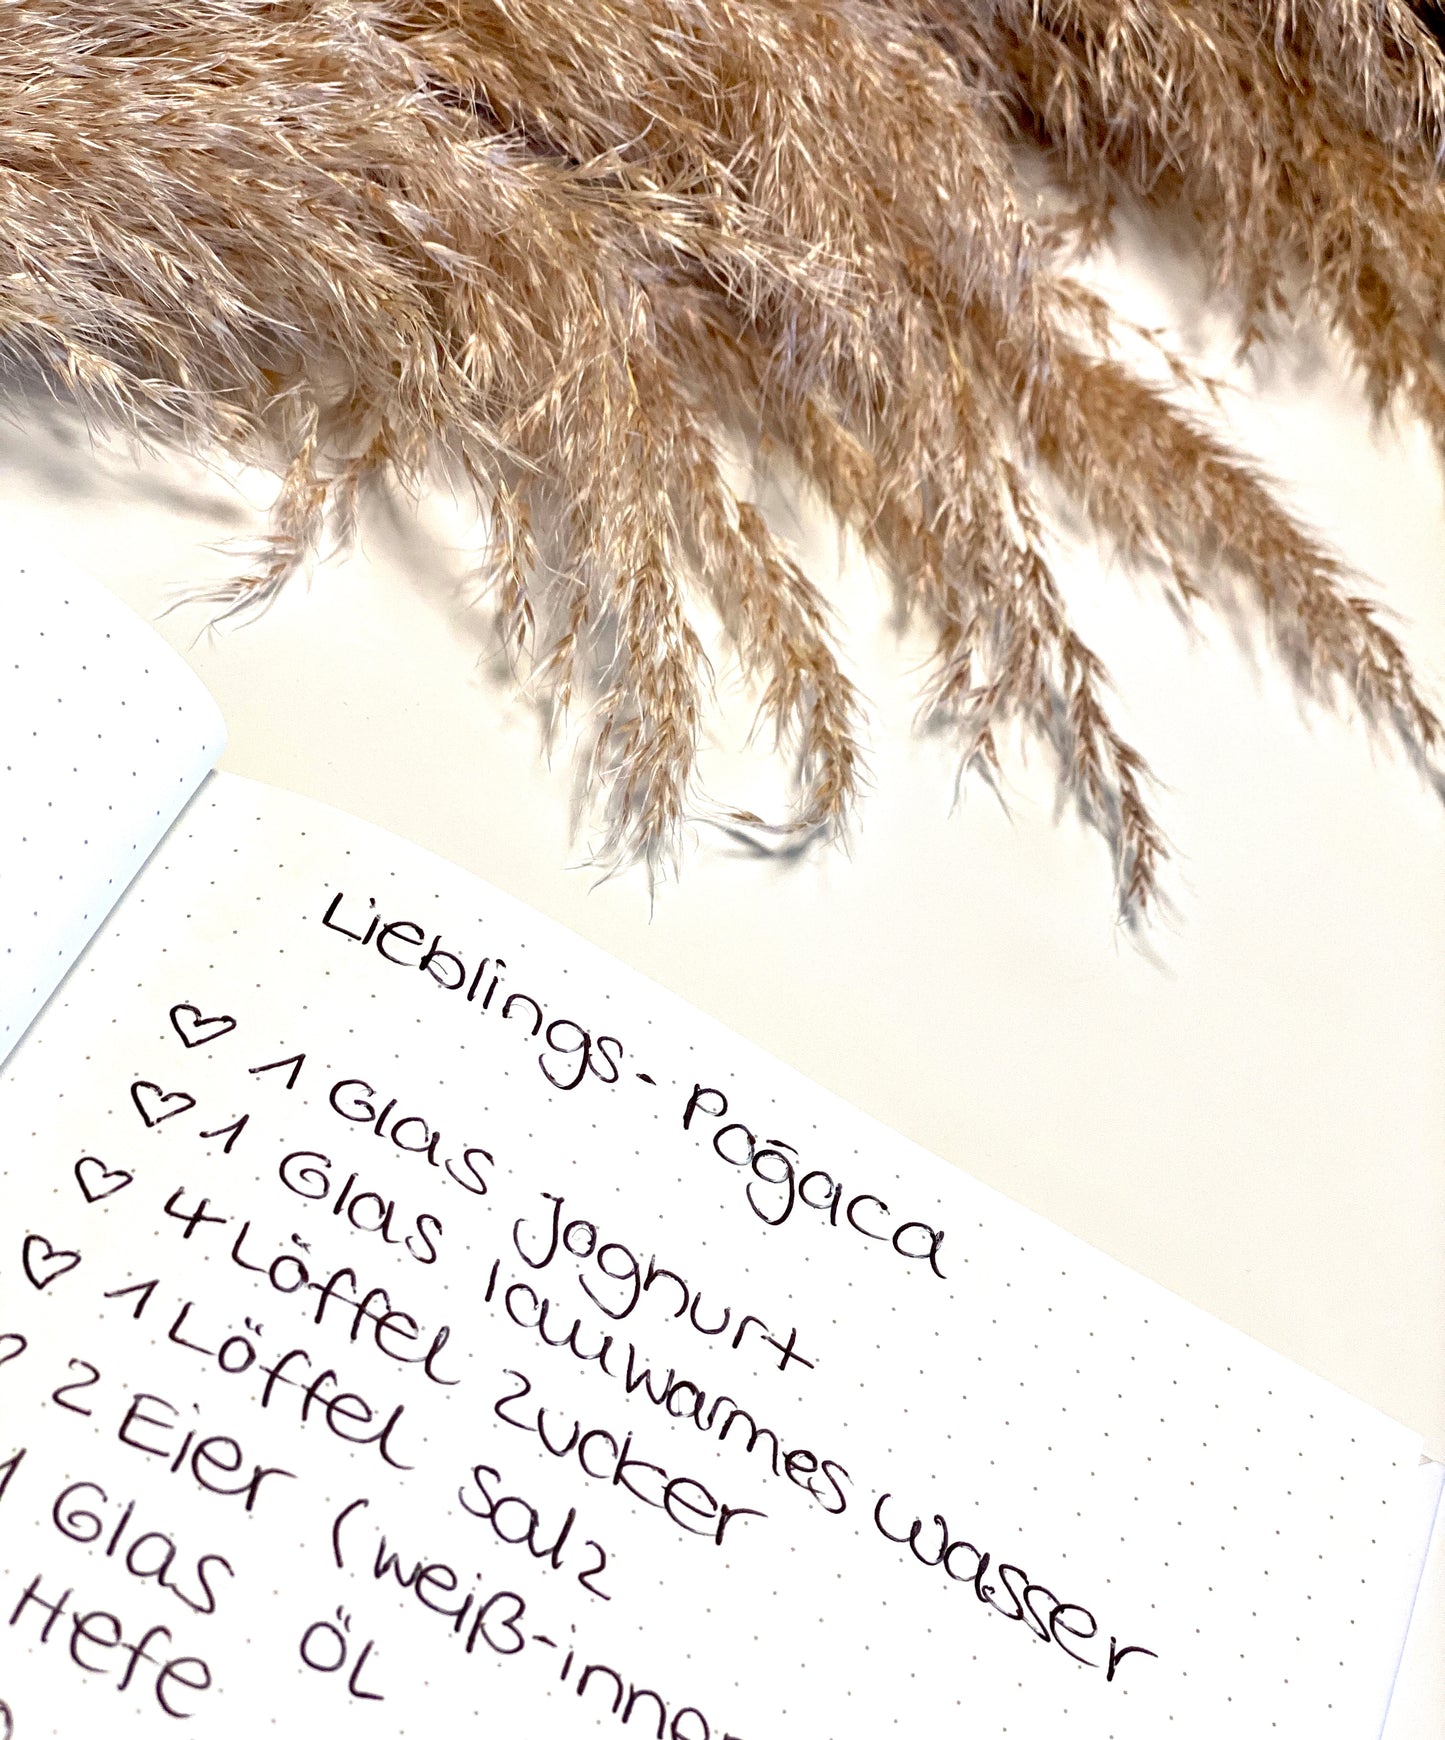 Lieblings-Poğaca
♡ 1 Glas Joghurt
♡ 1 Glas lauwarmes Wasser
♡ 4 Löffel Zucker
♡ 1 Löffel Salz
♡ 2 Eier (weiß-innen
1 Glas ÖL
Hefe